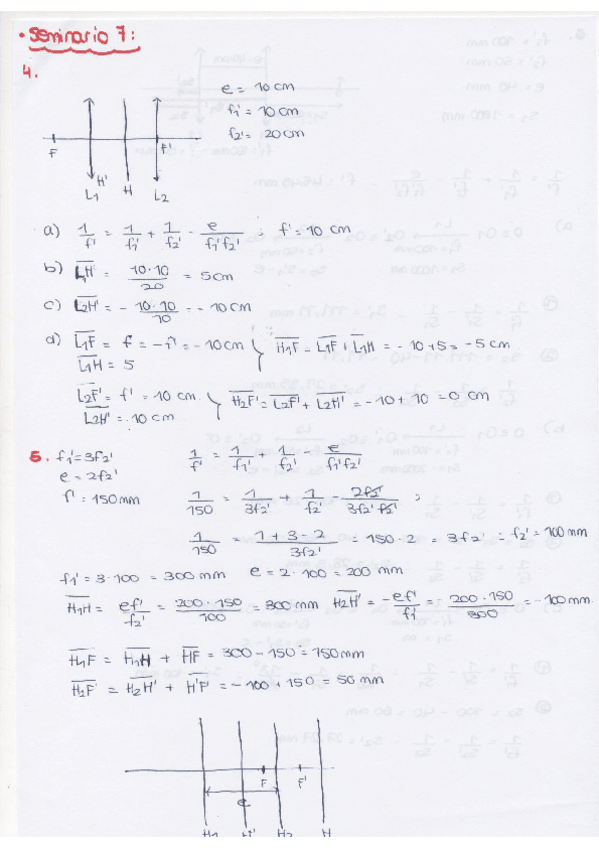 • Seminario 7:
4.
e = 10 cm
f1' = 10 cm
f2' = 20 cm
F H' F'
L1 H L2
a) 1/f' = 1/f1' + 1/f2' - e/f1'f2' ; f' = 10 cm
b) L1H = 10·10/20 = 5cm
c) L2H' = - 10·10/10 = - 10cm
d) L1F = f = -f' = - 10cm } H1F = L1F + L1H = - 10 + 5 = - 5 cm
L1H = 5
L2F' = f' = 10 cm } H2F' = L2F' + L2H' = - 10 + 10 = 0 cm
L2H' = . 10 cm
5. f1' = 3f2' 1/f' = 1/f1' + 1/f2' - e/f1'f2'
e = 2f2'
f' = 150 mm 1/150 = 1/3f2' + 1/f2' - 2f2'/3f2' f2' ;
1/150 = 1+3-2/3f2' = 150·2 = 3f2' = f2' = 100 mm
f1' = 3·100 = 300 mm e = 2·100 = 200 mm
H1H = ef'/f2' = 200·150/100 = 300mm H2H' = -ef'/f1' = 200·150/300 = - 100 mm
H1F = H1H + HF = 300 - 150 = 150mm
H2F' = H2H' + H'F' = - 100 + 150 = 50 mm
F F'
e
H1 H' H2 H